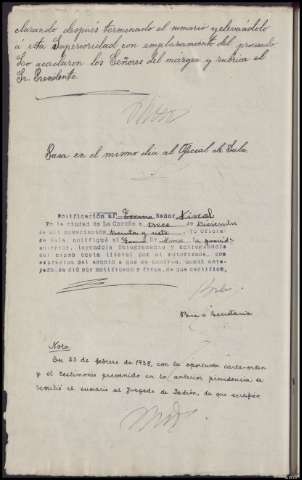 clarando después terminado el sumario y elevándolo
á esta Superioridad con emplazamiento del procesado
Lo acordaron los Señores del margen y rubrica el
Sr. Presidente
Pasa en el mismo día al Oficial de Sala
Notificación al Excmo Señor Fiscal
En la ciudad de La Coruña a trece de Diciembre
de mil novecientos treinta y siete, Yo Oficial
de Sala, notifiqué al Excmo Sr. Fiscal la providencia
anterior, leyéndola íntegramente y entregándole
en el mismo copia literal por él autorizada, con
expresión del asunto a que se contrae, quedó ente-
rado, se dió por notificado y firma, de que certifico,
Pasa a Secretaría
Nota
En 23 de febrero de 1938, con la oportuna carta-orden
y el testimonio prevenido en la anterior providencia, se
remitió el sumario al Juzgado de Padrón, de que certifico